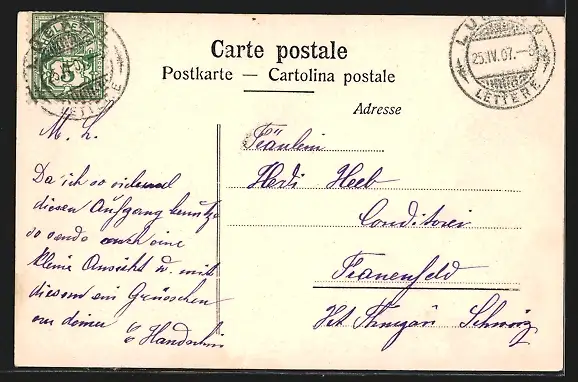 Carte postale
Postkarte — Cartolina postale
Adresse
LUGANO
25.IV.07.
LETTERE
5
M. L.
Da ich so vielmal
diesen Aufgang benütze
so sende auch eine
kleine Ansicht u. mit
diesem ein Grüsschen
von deiner
E Handschin
Fräulein
Hedi Heeb
Conditorei
Frauenfeld
Kt. Thurgau Schweiz